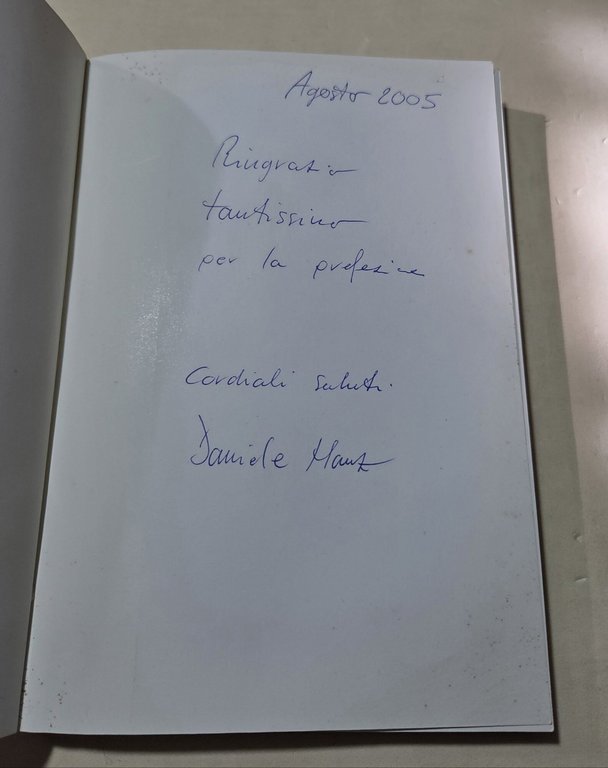 Agosto 2005
Ringrazio
tantissimo
per la prefazione
Cordiali saluti.
Daniele